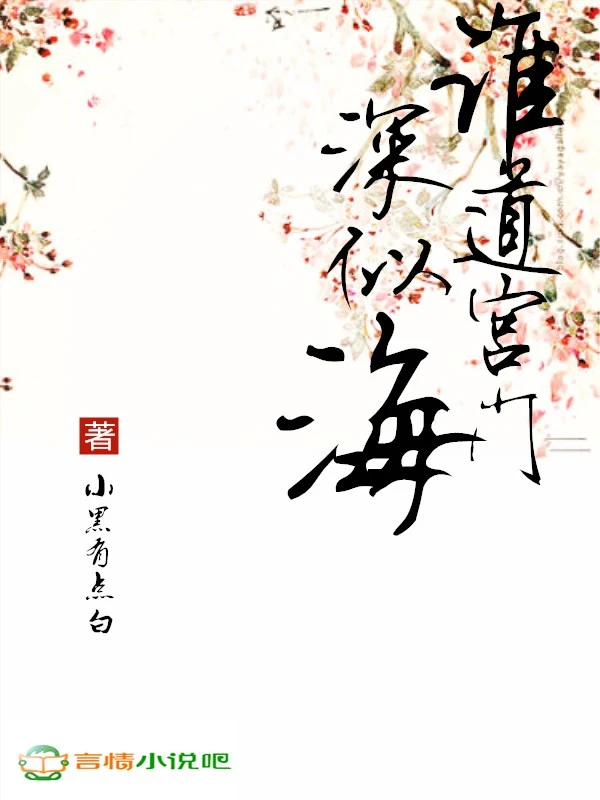 谁道宫门
深似海
著
小黑有点白
言情小说吧